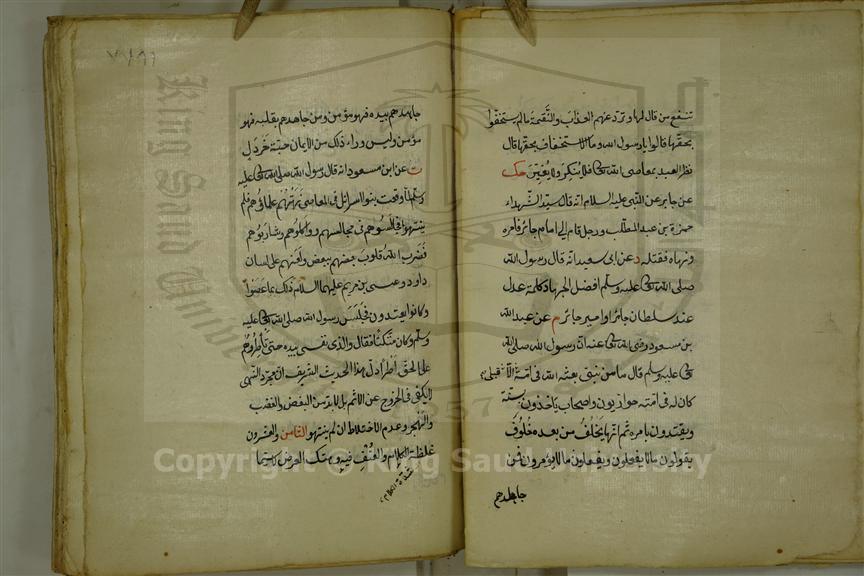 تنفع من قال لها وترد عنهم العذاب والنقمة ما لم يستخفوا
بحقها قالوا يا رسول الله وما الاستخفاف بحقها قال
نظر العبد بمعاصى الله تعالى فلا ينكر ولا يغير حك
عن جابر عن النبى عليه السلام انه قال سيد الشهداء
حمزة بن عبد المطلب ورجل قام الى امام جائر فامره
ونهاه فقتله د عن ابى سعيد انه قال رسول الله
صلى الله تعالى عليه وسلم افضل الجهاد كلمة عدل
عند سلطان جائر او امير جائر م عن عبد الله
بن مسعود رضى الله تعالى عنه ان رسول الله صلى الله
تعالى عليه وسلم قال ما من نبى بعثه الله فى امة الا قبلى
كان له فى امته حواريون واصحاب ياخذون بسنته
ويقتدون بامره ثم انها يخلف من بعده خلوف
يقولون مالا يفعلون ويفعلون مالا يؤمرون فمن
جاهدهم
جاهدهم بيده فهو مؤمن ومن جاهدهم بقلبه فهو
مؤمن وليس وراء ذلك من الايمان حبة خردل
ت عن ابن مسعود انه قال رسول الله صلى الله تعالى عليه
وسلم لما وقعت بنو اسرائل فى المعاصى نهتهم علماؤهم فلم
ينتهوا فجالسوهم فى مجالسهم وواكلوهم وشاربوهم
فضرب الله قلوب بعضهم ببعض ولعنهم على لسان
داود وعيسى بن مريم عليهما السلام ذلك بما عصوا
وكانوا يعتدون فجلس رسول الله صلى الله تعالى عليه
وسلم وكان متكئا فقال والذى نفسى بيده حتى تأطروهم
على الحق اطرا دل هذا الحديث الشريف ان مجرد النهى
لا يكفى فى الخروج عن الاثم بل لا بد من البغض والغضب
والهجر وعدم الاختلاط ان لم ينتهوا الثامن والعشرون
غلظة الكلام والعنف فيه وهتك العرض لا سيما
King Saud University
1957
Copyright © King Saud University